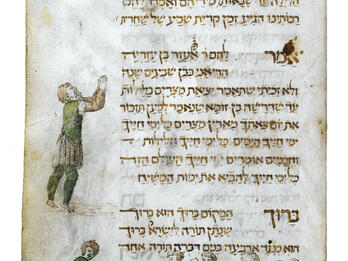 רבותינו הגיע זמן קרית שמע של שחרית
אמר להם ר׳ אלעזר בן עזריה
הרי אני כבן שבעים שנה
ולא זכיתי שתאמר יציאת מצרים בלילות
עד שדרשה בן זומא שנאמר למען תזכור
את יום צאתך מארץ מצרים כל ימי חייך
ימי חייך הימים כל ימי חייך הלילות
וחכמים אומרים ימי חייך העולם הזה
כל ימי חייך להביא את ימות המשיח
ברוך המקום ברוך הוא ברוך
שנתן תורה לישראל ברוך
הוא כנגד ארבעה בנים דברה תורה אחד